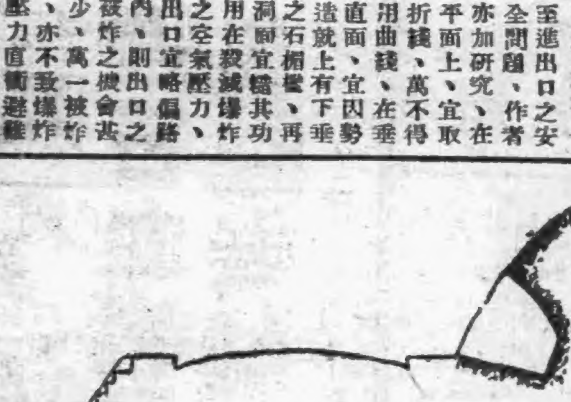 至進出口之安
全問題、作者
亦加研究、在
平面上、宜取
折綫、萬不得
用曲綫、在垂
直面、宜因勢
造就上有下垂
之石楣檻、再
洞面宜糙其功
用在殺減爆炸
之空氣壓力、
出口宜略偏路
內、則出口之
被炸之機會甚
少、萬一被炸
、亦不致爆炸
壓力直衝避難